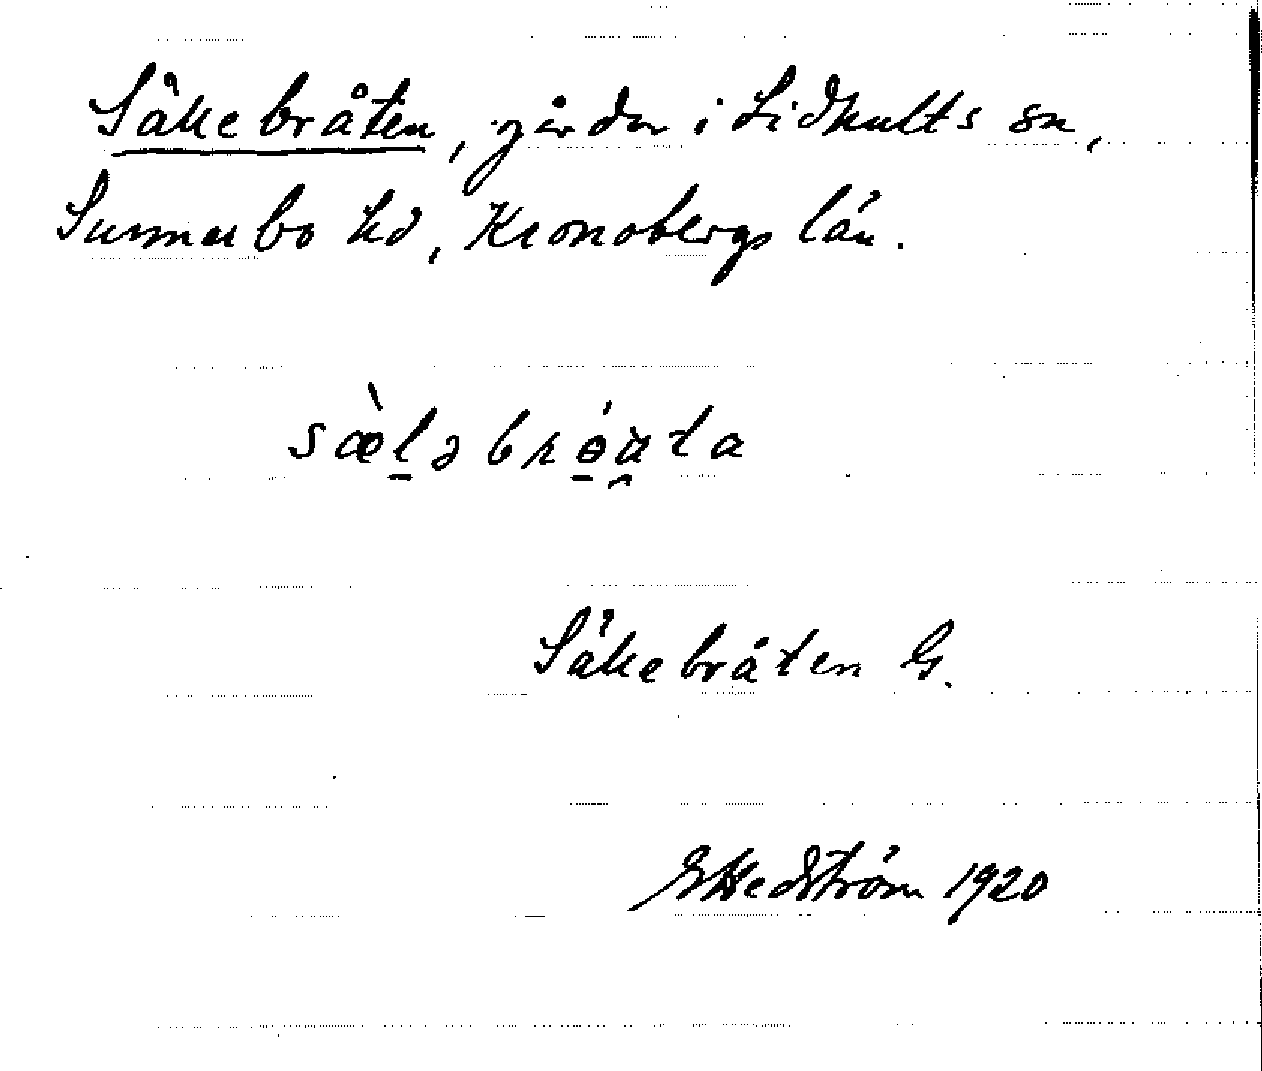 Sällebråten, gårdar i Lidhults sn,
Sunnerbo hd, Kronobergs län.
sæ̀l̠əbrө̠́a̯ta
Sällebråten G.
E Hedström 1920